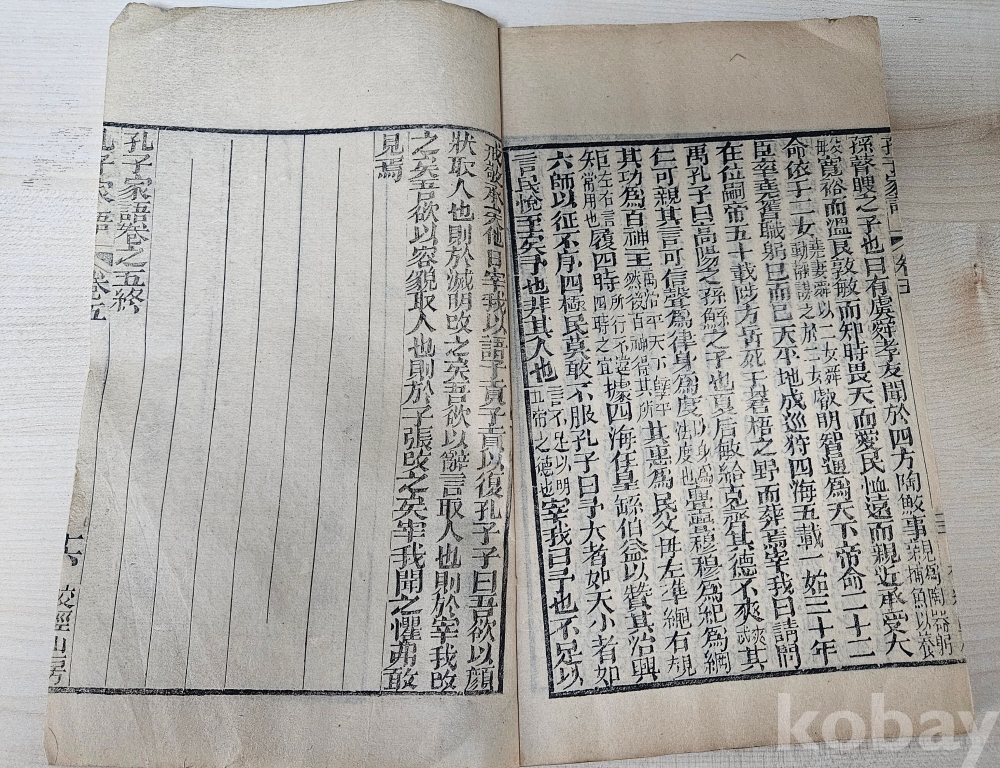 孔子家語 卷五
孫瞽瞍之子也曰有虞舜孝友聞於四方陶畋事
寬裕而溫良敦敏而知時畏天而愛民恤遠而親近承受大
命依于二女堯妻舜以二女舜動靜謀之於二女叡明智通爲天下帝命二十二
臣率堯舊職躬己而已天平地成巡狩四海五載一始三十年
在位嗣帝五十載陟方岳死于蒼梧之野而葬焉宰我曰請問
禹孔子曰高陽之孫鯀之子也夏后敏給克齊其德不爽爽忒其
仁可親其言可信聲爲律身爲度以身爲法度也亹亹穆穆爲紀爲綱
其功爲百神主禹治平天下然後百神得其所其惠爲民父母左準繩右規
矩左右言常用也履四時所行不違四時之宜據四海任皋繇伯益以贊其治興
六師以征不序四極民莫敢不服孔子曰予大者如天小者如
言民悅至矣予也非其人也言不足以明五帝之德也宰我曰予也不足以
戒敬承矣他日宰我以語子貢子貢以復孔子子曰吾欲以顏
狀取人也則於滅明改之矣吾欲以辭言取人也則於宰我改
之矣吾欲以容貌取人也則於子張改之矣宰我聞之懼弗敢
見焉
孔子家語卷之五終
孔子家語 卷五 十六 校經山房
kobay